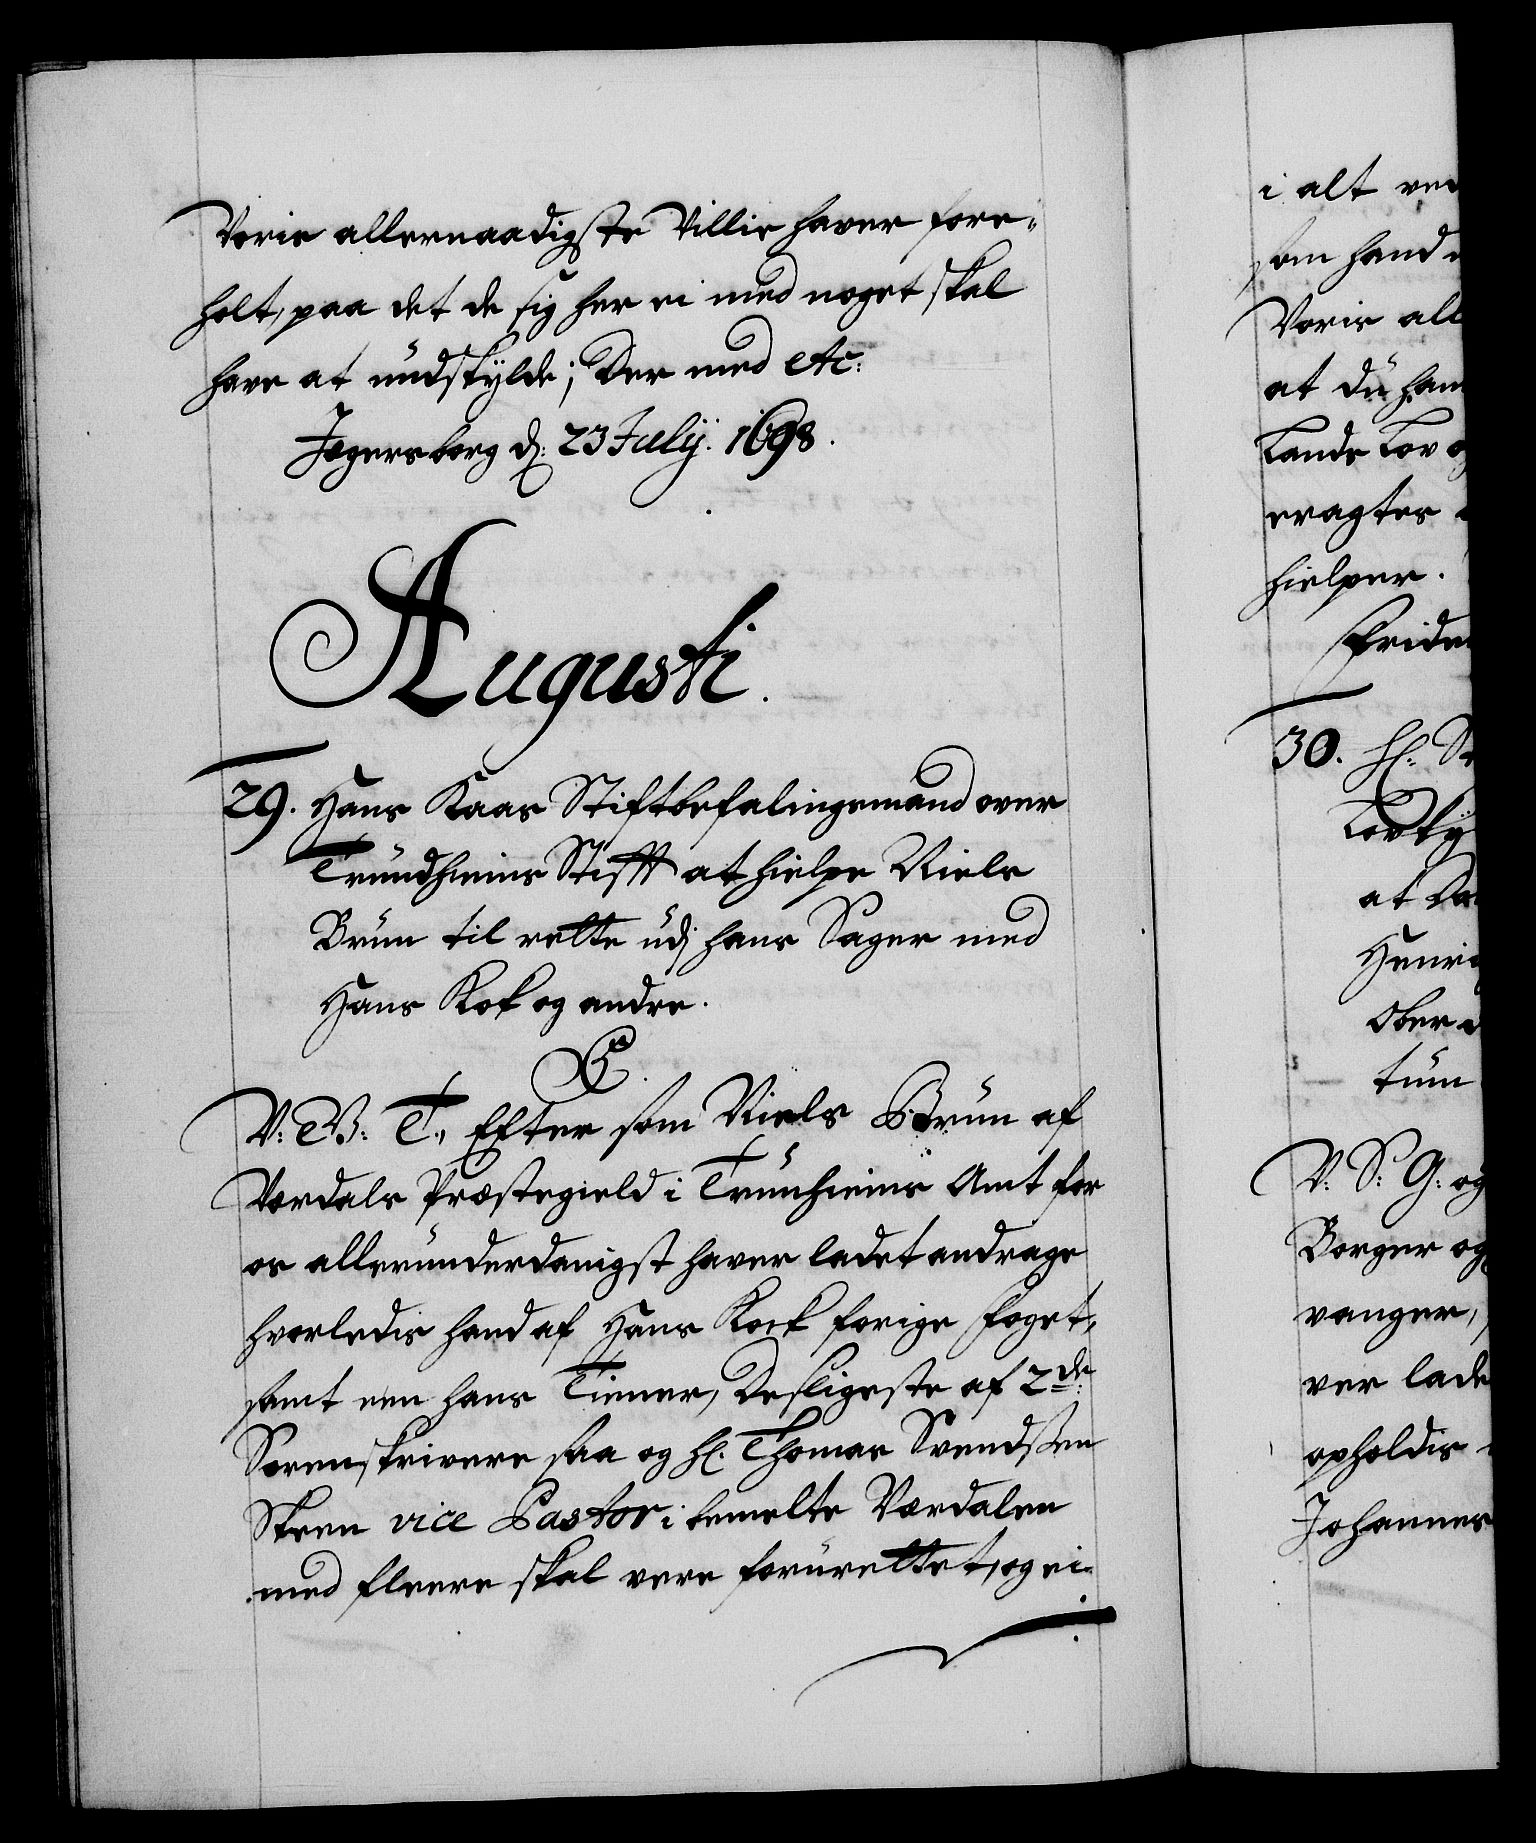 Vorie allernaadigste Villie haver fore-
holt, paa det de sig her ei med noget skal
have at undskylde; Der med etc:
Jegersborg d: 23 July: 1698.
Augusti.
29. Hans Kaas Stiftbefalingsmand over
Trundhiems Stifft at hielpe Niels
Brun til rette udj hans Sager med
Hans Kok og andre.
C5.
V: G: T., Efter som Niels Brun af
Verdals Præstegield i Trunhiems Amt for
os allerunderdanigst haver ladet andrage
hvorledis hand af Hans Kock forige foget,
samt een hans Tienner, Desligeste af 2de
Sorenskrivere saa og Hr. Thomas Svendsen
Skeen vice Pastor i bemelte Værdalen
med fleere skal vere foruretttet, og ei-
i alt ved
som hand
Voris all
at du ham
Lands Lov og
eragter
hielper.
Friden
30. Hr. St
Lovky
at
Henri
Ober
tum
V: S: G: og
Borger og
vanger,
ver lade
opholdis
Johannes